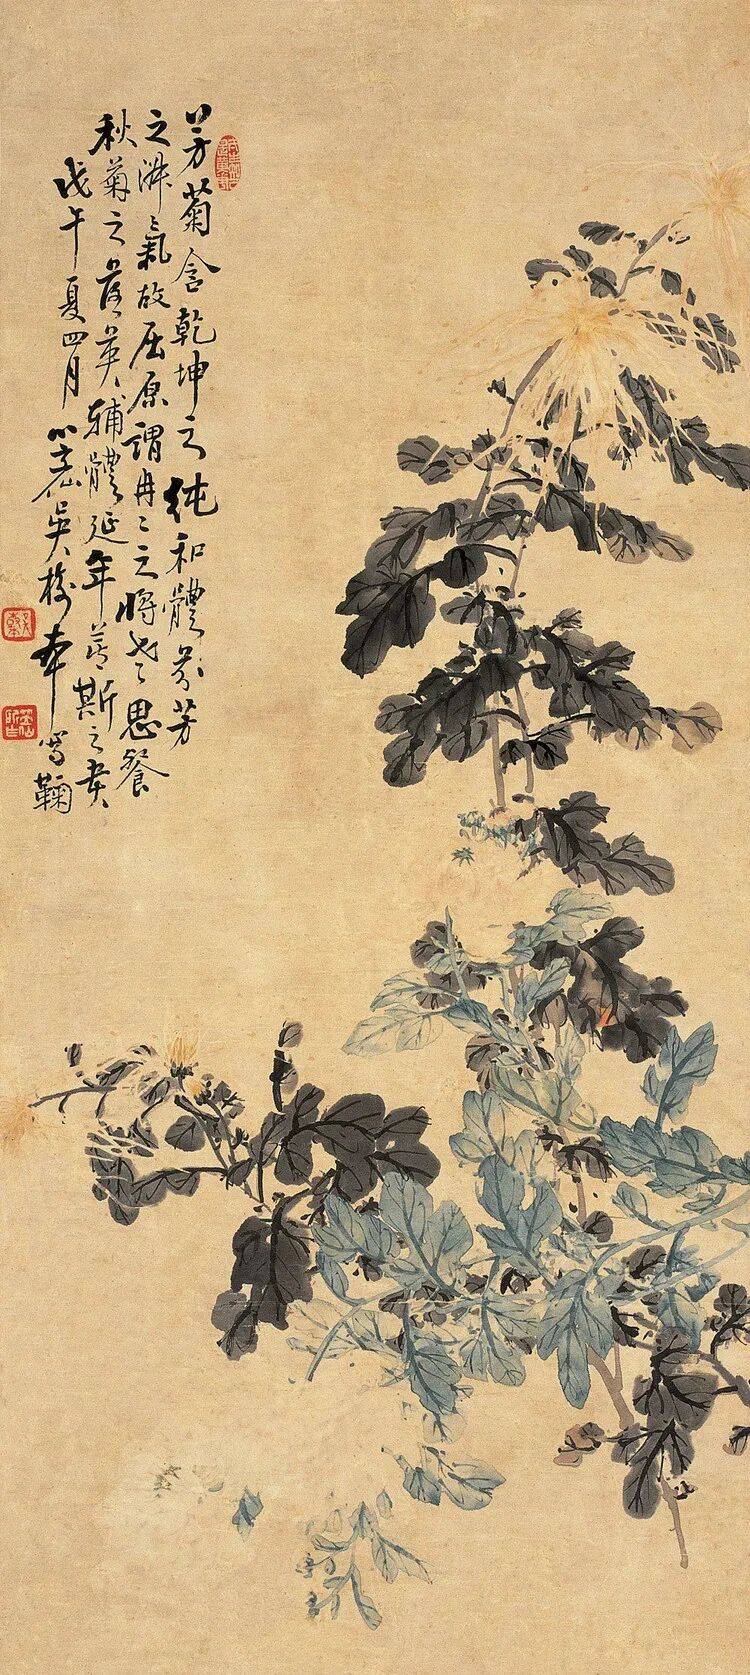 芳菊含乾坤之純和體芬芳
之淑氣故屈原謂冉〻之將老思餐
秋菊之落英輔體延年莫斯之貴
戊午夏四月小窗吳樹本寫鞠